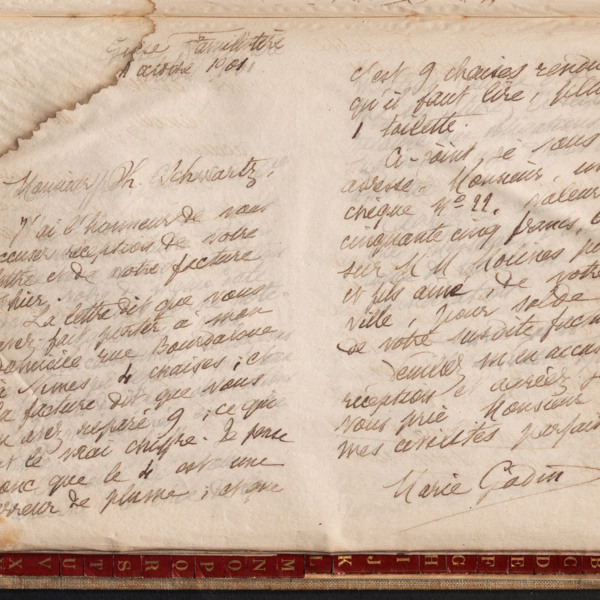 Guise Familistère
1 octobre 1901
Monsieur Ph. Schwartz,
J'ai l'honneur de vous
accuser réception de votre
lettre et de votre facture
d'hier.
La lettre dit que vous
avez fait porter à mon
domicile rue Bourdaloue
à Nîmes 4 chaises; 
la facture dit que vous
en avez réparé 9; ce qui
est le vrai chiffre. Je pense
donc que le 4 est une
erreur de plume; et que
c'est 9 chaises
qu'il faut lire,
1 toilette.
Ci-joint je vous
adresse, Monsieur, un
chèque No 22, valeur
cinquante cinq francs,
sur MM
et fils aîné, de votre
ville, pour solde
de votre susdite
Veuillez m'en accuser
réception et agréer je
vous prie Monsieur
mes civilités
Marie Godin
X V U T S R Q P O N M L K J I H G F E D C B